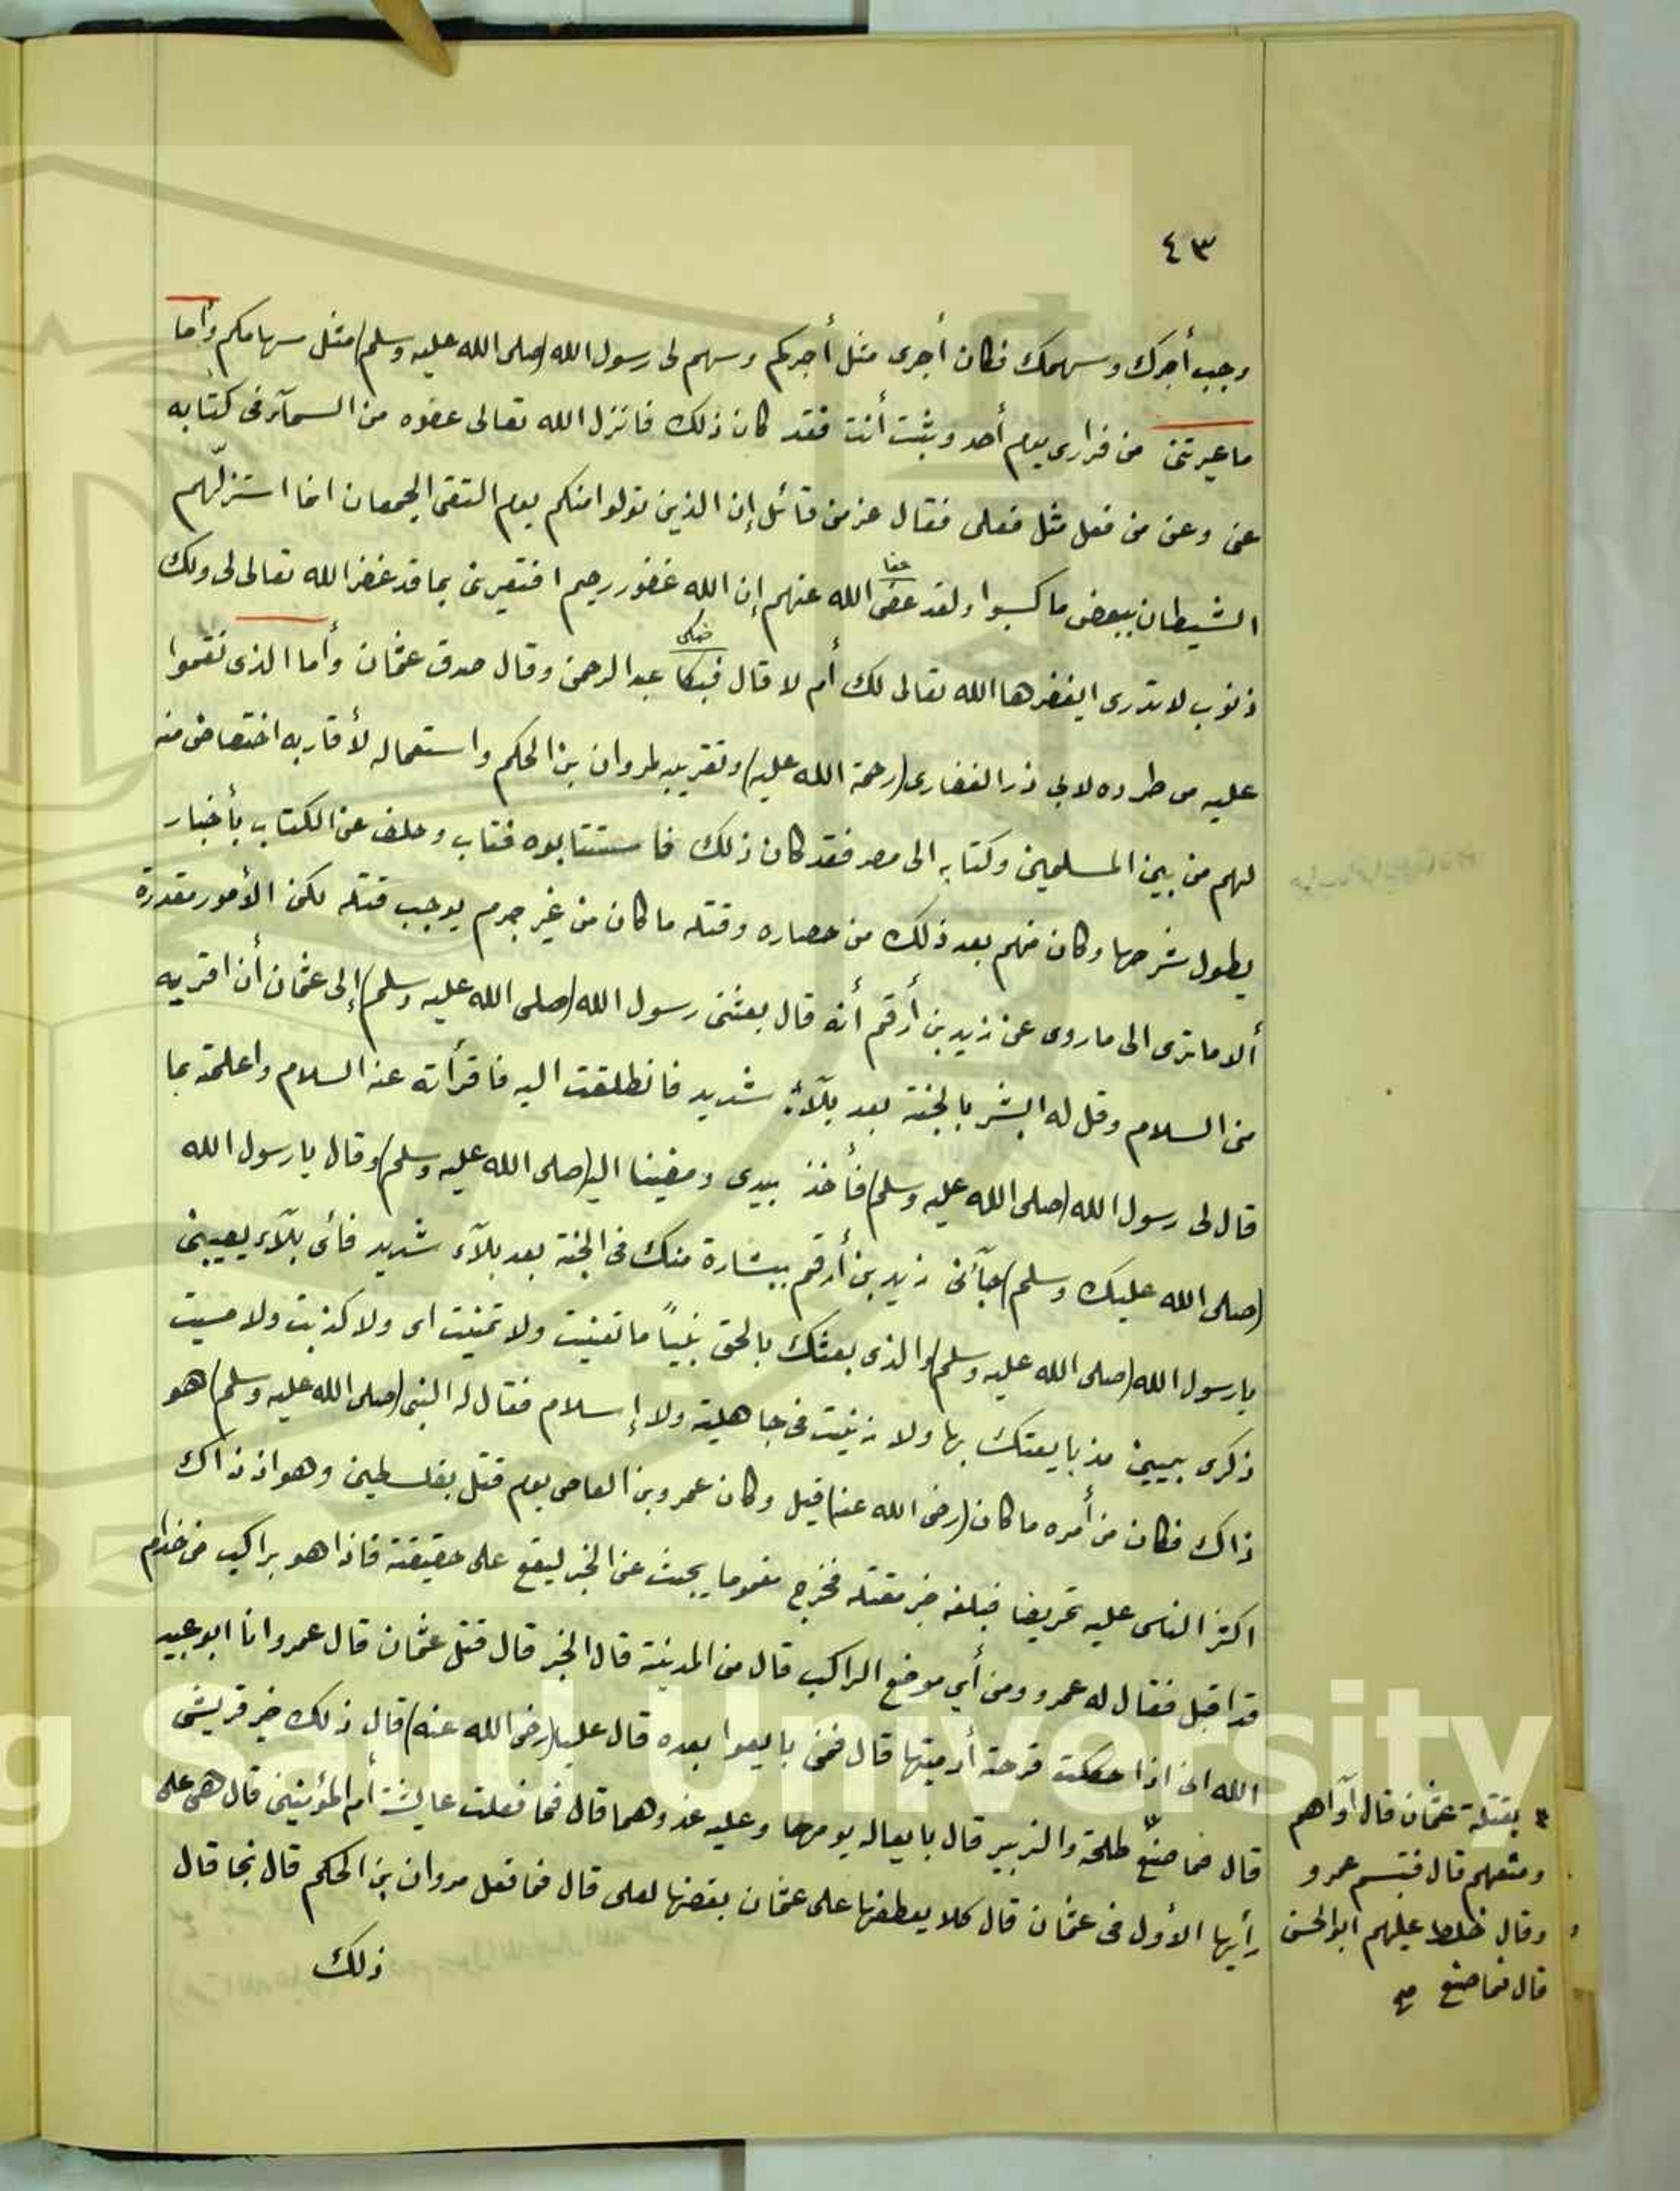 ٤٣
وجب أجرك وسهمك فكان أجرى مثل أجركم وسهم لى رسول الله (صلى الله عليه وسلم) مثل سهامكم وأما
ما عيرتنى من فرارى يوم أحد وثبت أنت فقد كان ذلك فانزل الله تعالى عفوه من السمآء فى كتابه
عنى وعن من فعل مثل فعلى فقال عز من قائل إن الذين تولوا منكم يوم التقى الجمعان انما استزلّهم
الشيطان ببعض ما كسبوا ولقد عفى الله عنهم إن الله غفور رحيم افتعيرنى بما قد غفر الله تعالى لى ولك
عفا
ذنوب لا تدرى ايغفرها الله تعالى لك أم لا قال فبكا عبد الرحمن وقال صدق عثمان وأما الذى نقموا
فبكى
عليه من طرده لابى ذر الغفارى (رحمة الله عليه) وتقريبه لمروان بن الحكم واستعماله لأقاربه اختصاص منه
لهم من بين المسلمين وكتابه الى مصر فقد كان ذلك فاستتابوه فتاب وحلف عن الكتاب بأخبار
يطول شرحها وكان منهم بعد ذلك من حصاره وقتله ما كان من غير جرم يوجب قتله لكن الأمور مقدرة
ألا ما ترى الى ما روى عن زيد بن أرقم أنه قال بعثنى رسول الله (صلى الله عليه وسلم) إلى عثمان أن اقريه
منى السلام وقل له ابشر بالجنة بعد بلآء شديد فانطلقت اليه فاقرأته عنه السلام واعلمته بما
قال لى رسول الله (صلى الله عليه وسلم) فأخذ بيدى ومضينا اليه (صلى الله عليه وسلم) وقال يا رسول الله
(صلى الله عليك وسلم) جآئنى زيد بن أرقم ببشارة منك فى الجنة بعد بلآء شديد فائى بلآء يصيبنى
يا رسول الله (صلى الله عليه وسلم) والذى بعثك بالحق نبياً ما تغنيت ولا تمنيت اى ولا كذبت ولا مسيت
ذكرى بيمينى مذ بايعتك بها ولا زنيت فى جاهلية ولا إسلام فقال له النبى (صلى الله عليه وسلم) هو
ذاك فكان من أمره ما كان (رضى الله عنه) قيل وكان عمرو بن العاصى يوم قتل بفلسطين وهو اذ ذاك
اكثر الناس عليه تحريضا فبلغه خبر مقتله فخرج مغموما يبحث عن الخبر ليقع على حقيقته فاذا هو براكب من خذام
قد اقبل فقال له عمرو ومن أي موضع الراكب قال من المدينة قال الخبر قال قتل عثمان قال عمرو انا ابو عبيد
الله انى اذا حككت قرحة أدميتها قال فمن بايعوا بعده قال عليا (رضى الله عنه) قال ذلك خير قريش
قال فما صنع طلحة والزبير قال بايعاله يومها وعليه غذوهما قال فما فعلت عايشة أم المؤمنين قال هى على
رأيها الأول فى عثمان قال كلا يعطفها على عثمان بغضها لعلى قال فما فعل مروان بن الحكم قال نجا قال
ذلك
بقتلة عثمان قال آواهم
ومنعهم قال فتبسم عمرو
وقال خلط عليهم ابو الحسن
قال فما صنع صح
King Saud University